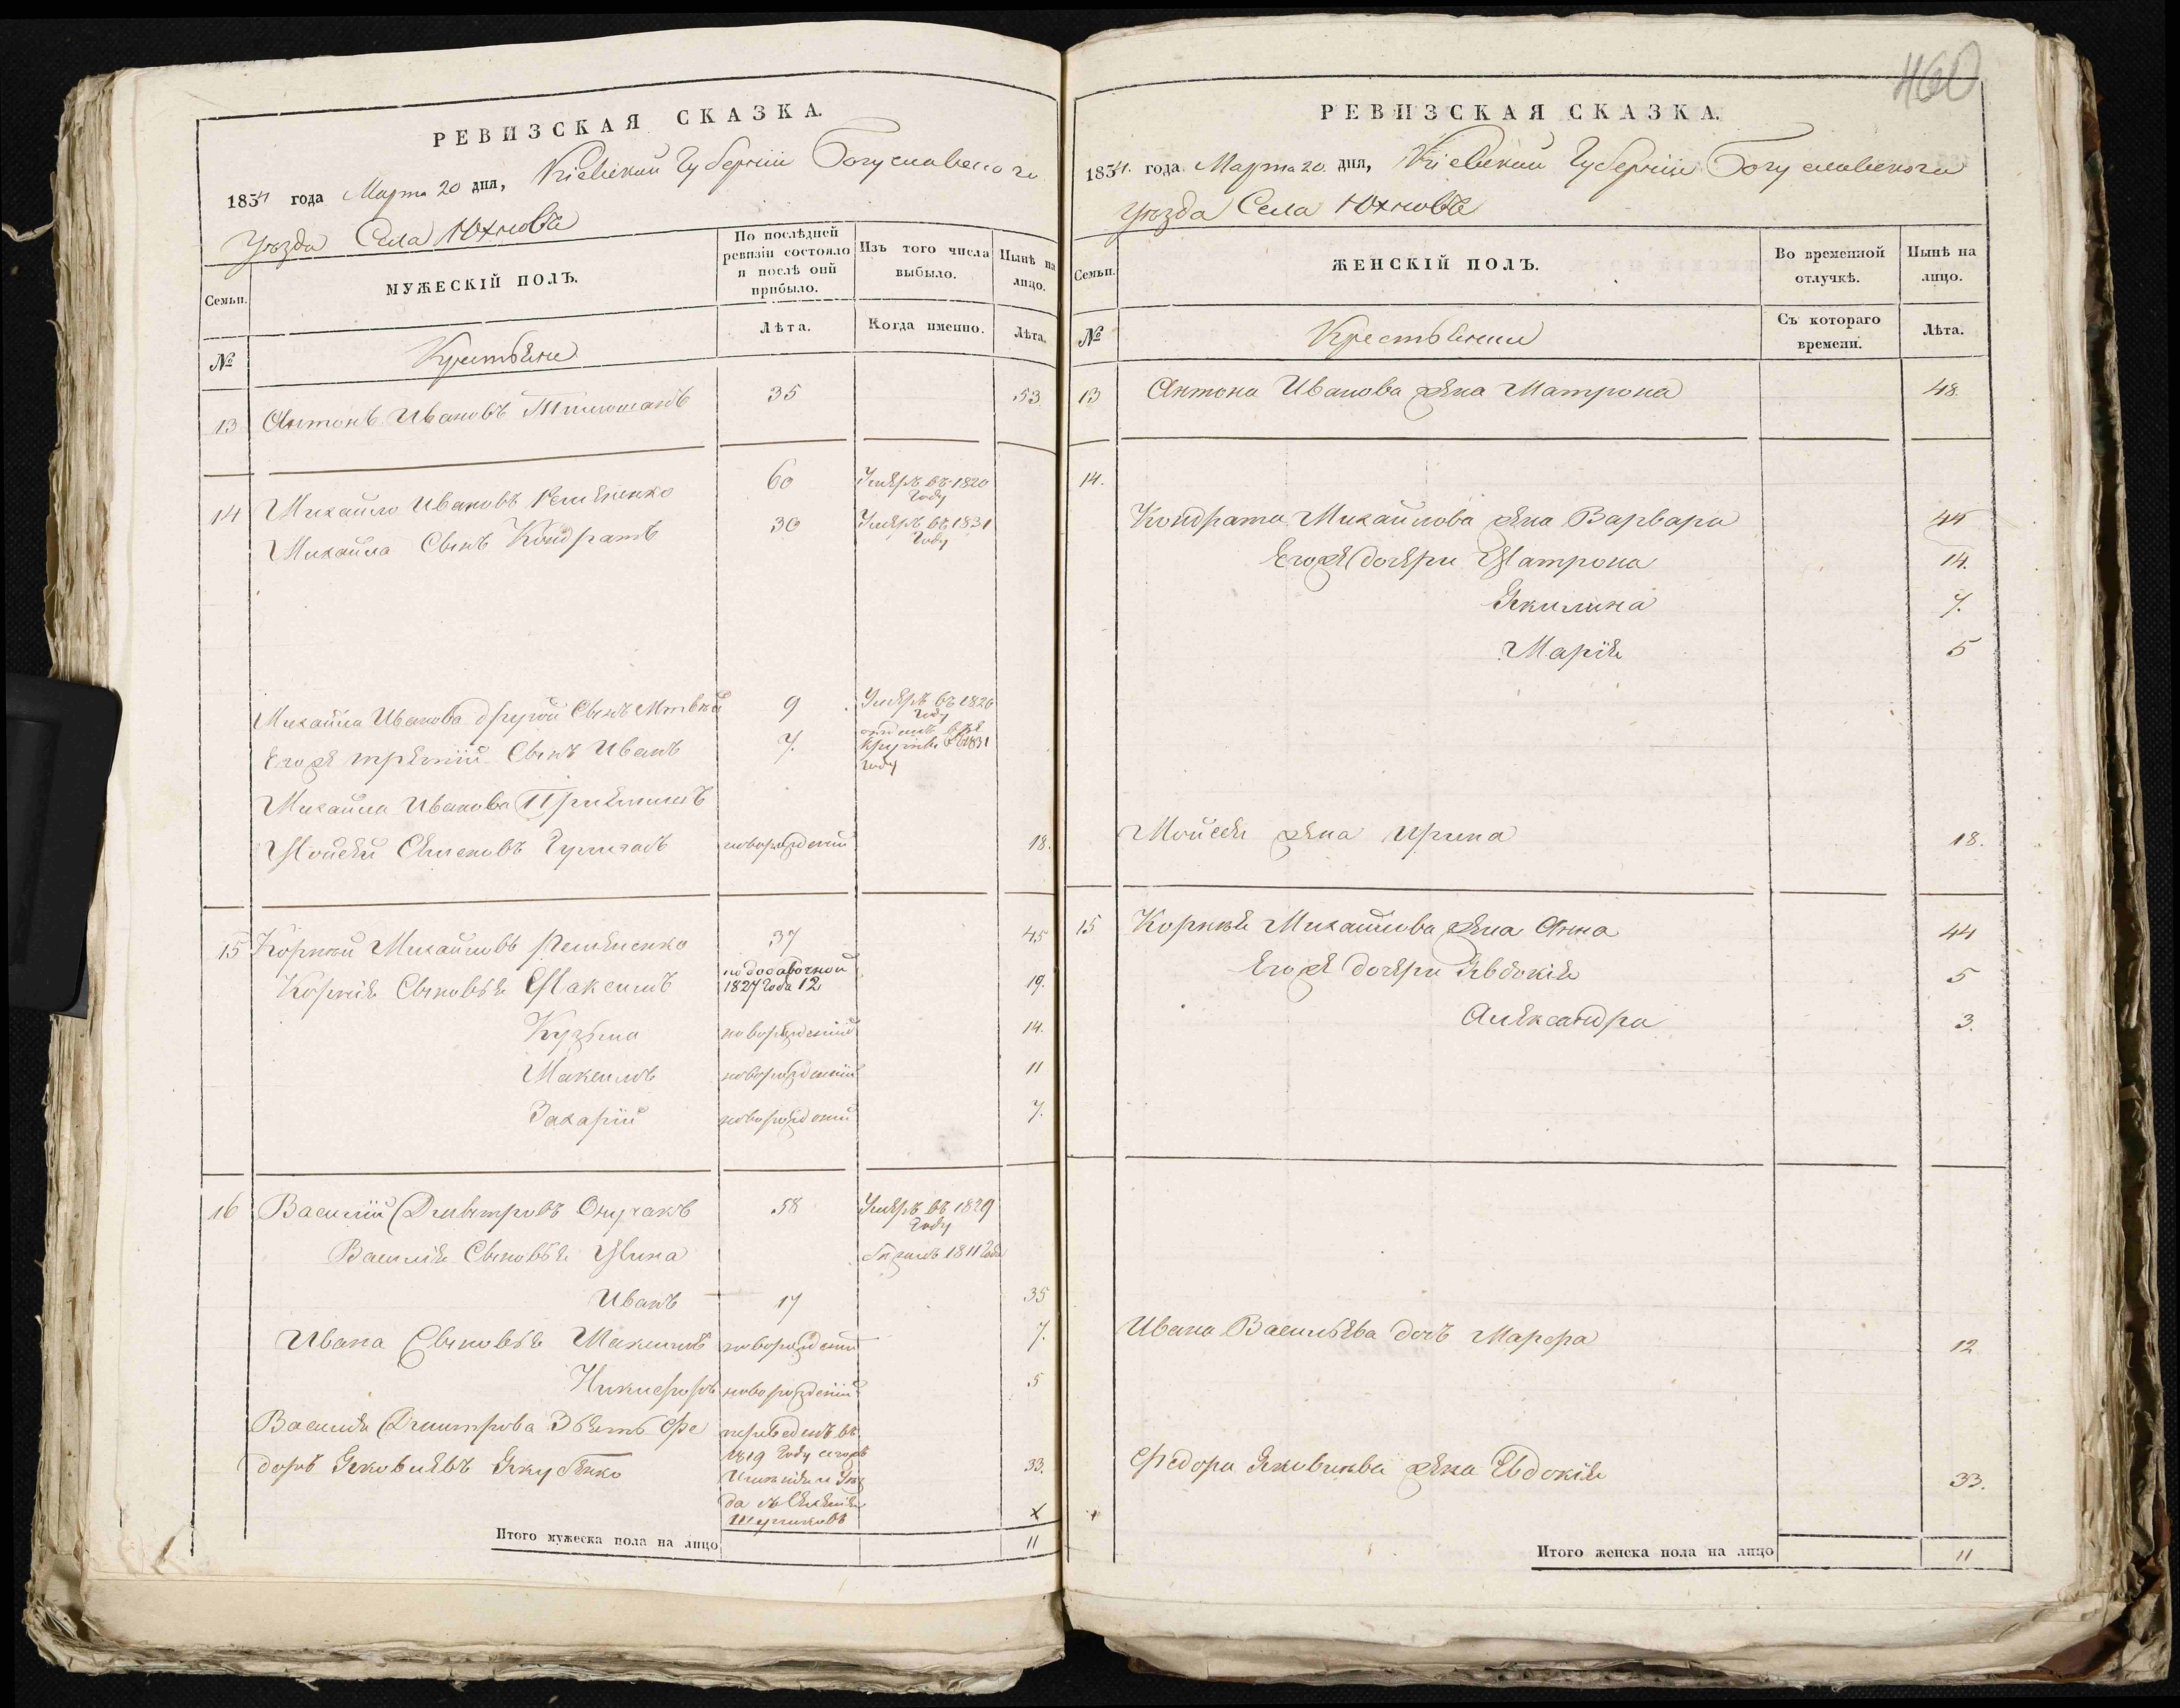 РЕВИЗСКАЯ СКАЗКА.
1834 года Марта 20 дня, Кіевской Губерніи Богуславского
Уѣзда Села Юхновъ
Семьи.
МУЖЕСКІЙ ПОЛЪ.
По послѣдней ревизіи состояло и послѣ оной прибыло.
Изъ того числа выбыло.
Нынѣ на лицо.
№
Крестьяне
Лѣта.
Когда именно.
Лѣта.
13 Антонъ Ивановъ 35 53
14 Михайло Ивановъ 60 Умеръ въ 1820 Году
Михайла Сынъ Кондратъ 30 Умеръ въ 1831 Году
Михайла Иванова другой Сынъ Матвѣй 9 Умеръ въ 1826 Году
Егожъ третій Сынъ Иванъ 7. 1831 Году
Михайла Иванова Пріемышъ
Мойсей новорожденній 18.
15 Корній Михайловъ 37 45
Корнія Сыновья Максимъ по добавочной 1827 Года 12 19.
Кузьма новорожденній 14.
Максимъ новорожденній 11
Захарій новорожденній 7.
16 Василій Дмитровъ 58 Умеръ въ 1829 Году
Василія Сыновья 1811 Года
Иванъ 17 35
Ивана Сыновья Максимъ новорожденній 7.
Никифоръ новорожденній 5
Василія Дмитрова Зять Фе
доръ Яковлевъ Якубенко переведенъ въ 1819 Году 33.
Итого мужеска пола на лицо 11
460
РЕВИЗСКАЯ СКАЗКА.
1834. года Марта 20. дня, Кіевской Губерніи Богуславского
Уѣзда Села Юхновъ
Семьи.
ЖЕНСКІЙ ПОЛЪ.
Во временной отлучкѣ.
Нынѣ на лицо.
№
Крестьянки
Съ котораго времени.
Лѣта.
13 Антона Иванова жена Матрона 48.
14.
Кондрата Михайлова жена Варвара 44
Егожъ дочери Матрона 14.
Якилина 7.
Марія 5
Мойсея жена Ирина 18.
15 Корнія Михайлова жена Анна 44
Егожъ дочери Явдокія 5
Александра 3.
Ивана Васильева дочъ Марфа 12
Федора Яковлева жена Евдокія 33.
Итого женска пола на лицо 11